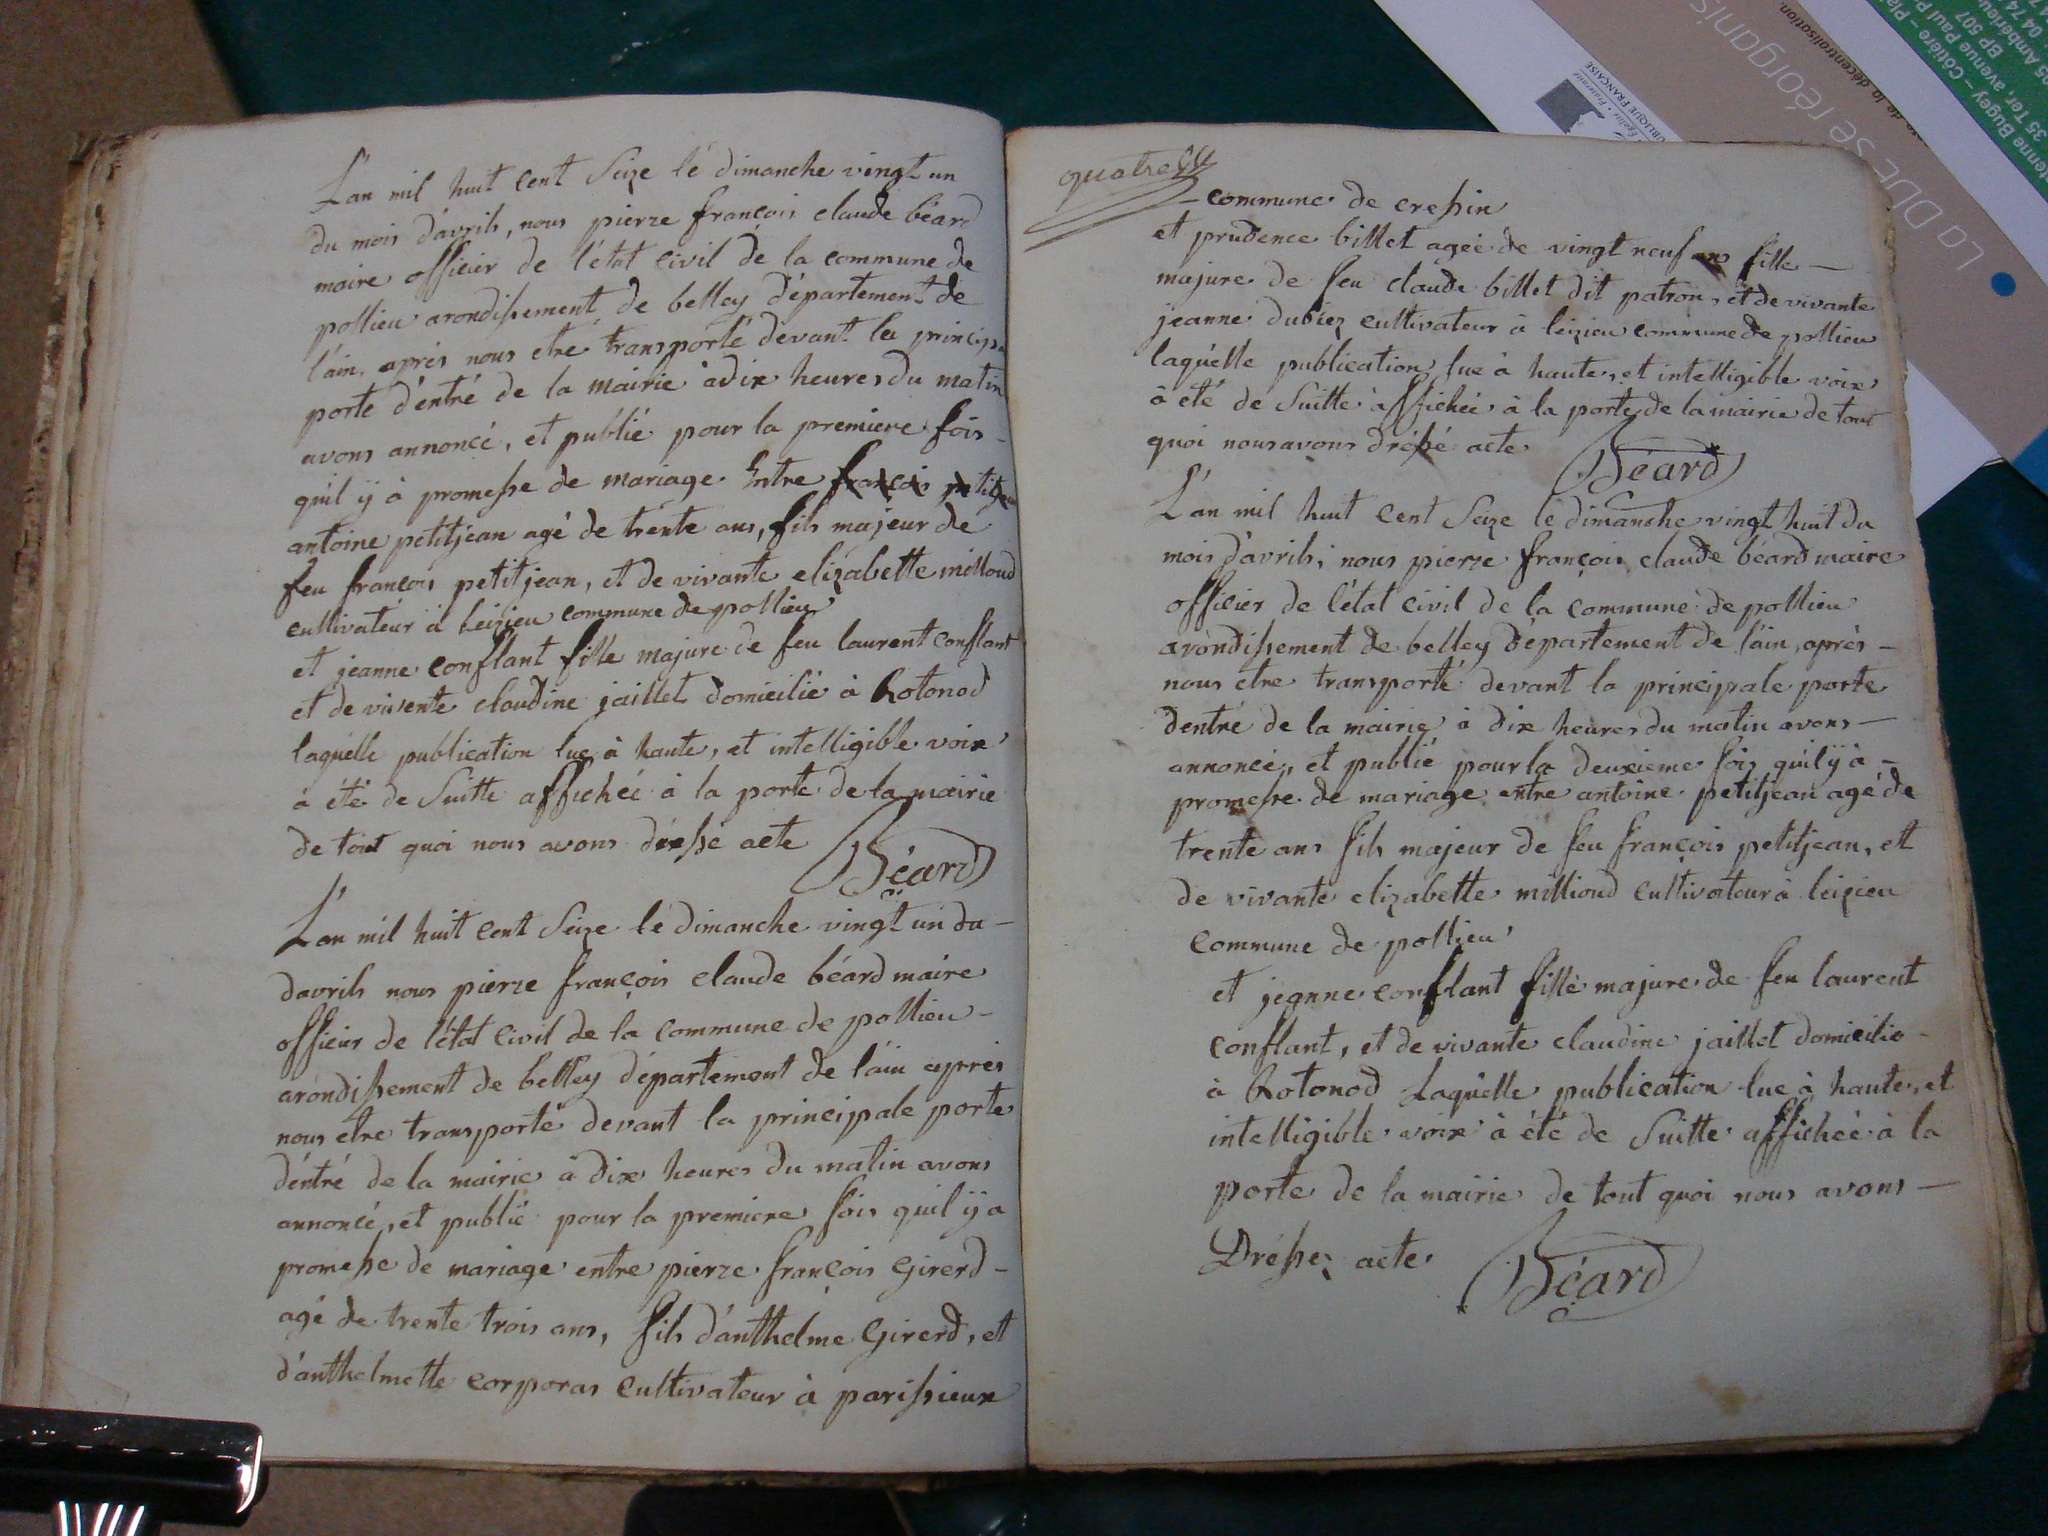 L'an mil huit cent Seize lé dimanche vingt un
du mois d'avrils, nous pierre françois claude béard
maire officier de l'état civil de la commune de
pollieu arondissement de belley département de
l'ain, aprés nous etre transporté devant la principa
porte d'éntré de la mairie à dix heures du matin
avons annoncé, et publié pour la premiere fois -
quil ÿ à promesse de mariage Entre françois petitjean
antoine petitjean agé de trente ans, fils majeur de
feu françois petitjean, et de vivante elizabette millioud
cultivateur à leizieu commune de pollieu
et jeanne conflant fille majure de feu laurent conflant
et de vivente claudine jaillet domicilié à Rotonod
laquélle publication lue à haute, et intelligible voix
à été de Suitte affichéé à la porte de la mairie
de tout quoi nous avons dréssé acte
Béard
L'an mil huit cent Seize lé dimanche vingt un du -
davrils nous pierre françois claude béard maire
officier de l'état civil de la commune de pollieu -
arondissement de belley département de l'ain aprés
nous etre transporté devant la principale porte
d'éntré de la mairie à dix heures du matin avons
annoncé, et publié pour la premiere fois quil ÿ a
promesse de mariage entre pierre françois Girerd -
agé de trente trois ans, fils d'anthelme Girerd, et
d'anthelmette corporas cultivateur à parissieux
quatre
- commune de cressin
et prudence billet ageé de vingt neuf ans fille -
majure de feu claude billet dit patron, et de vivante
jeanne dubiez cultivateur à leizieu commune de pollieu
laquélle publication lue à haute, et intelligible voix
à été de Suitte affichéé à la porte de la mairie de tout
quoi nous avons dréssé acte
Béard
L'an mil huit cent Seize lé dimanche vingt huit du
mois d'avrils, nous pierre françois claude béard maire
officier de l'état civil de la commune de pollieu
arondissement de belley département de l'ain, aprés -
nous etre transporté devant la principale porte
dentré de la mairie à dix heures du matin avons -
annoncé, et publié pour la deuxieme fois quil ÿ à -
promesse de mariage entre antoine petitjean agé de
trente ans fils majeur de feu françois petitjean, et
de vivante elizabette millioud cultivateur à leizieu
commune de pollieu
et jeanne conflant fille majure de feu laurent
conflant, et de vivante claudine jaillet domicilié -
à Rotonod Laquélle publication lue à haute, et
intelligible voix à été de Suitte affichéé à la
porte de la mairie de tout quoi nous avons -
Dréssez acte
Béard
La DDE se réorganis
de la décentralisation.
Égalité • Fraternité
UBLIQUE FRANÇAISE
enne Bugey – Côtière – Pla
35 Ter, avenue Paul P
BP 507